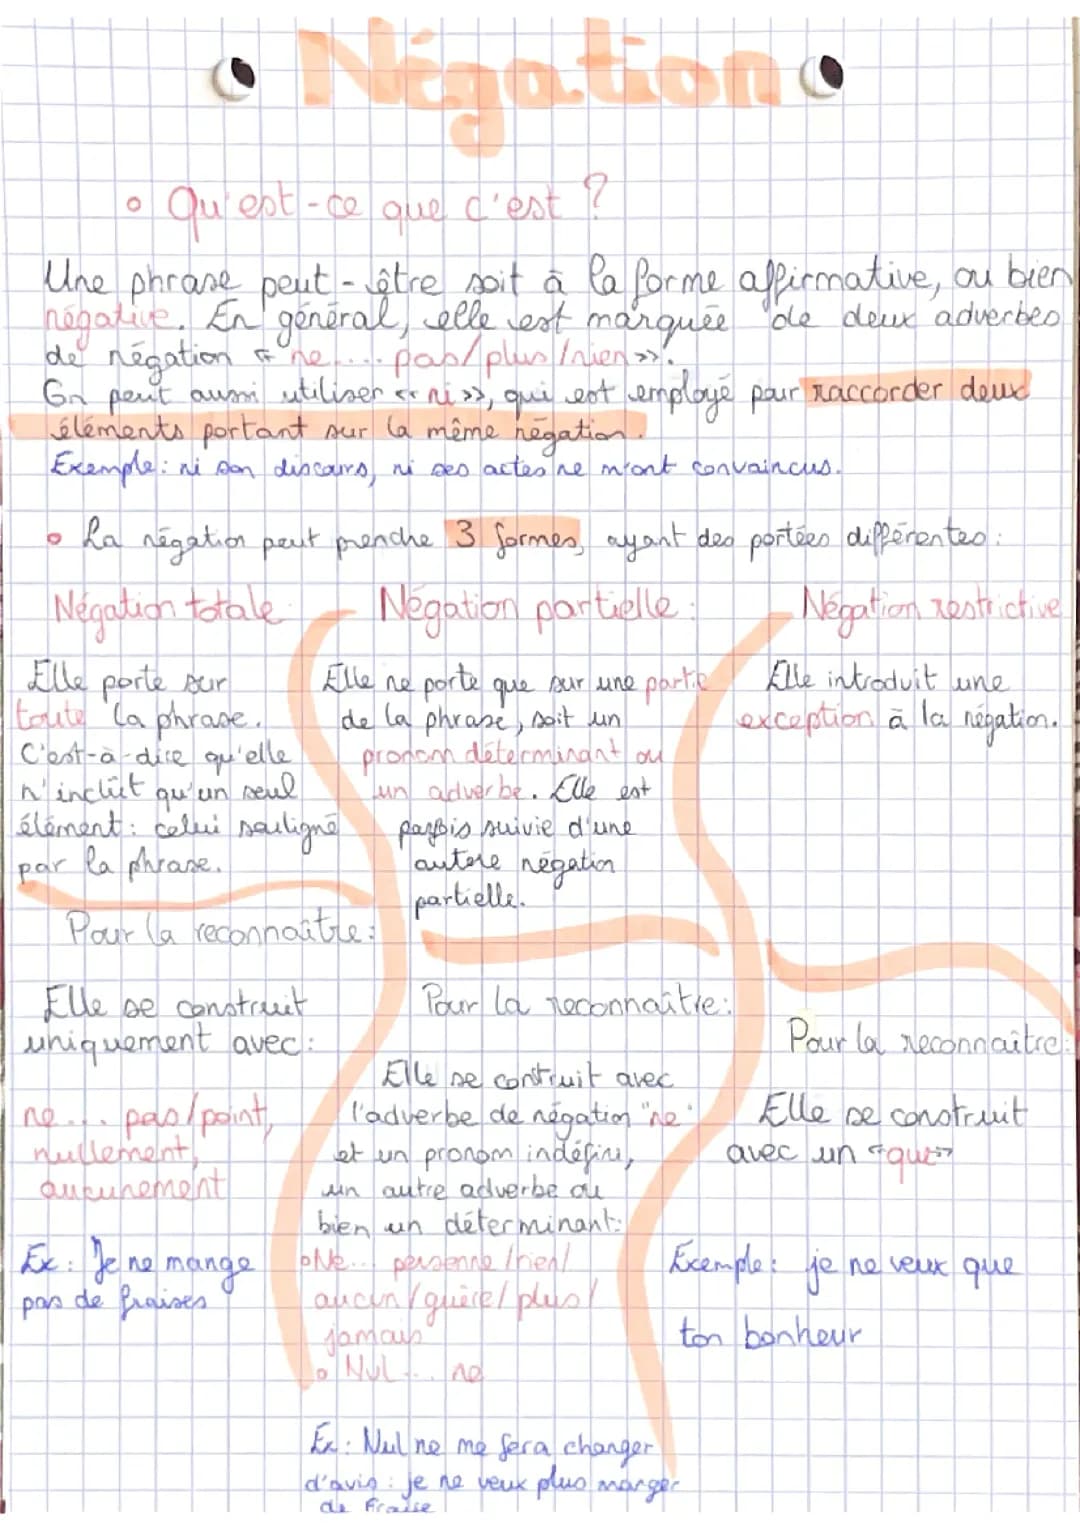 Négation
Qu'est-ce que c'est ?
Une phrase peut-être soit à la forme affirmative, ou bien
négative. En général, elle est marquée de deux adverbes
de négation « ne.... pas/plus/rien ».
On peut aussi utiliser « ni », qui est employé pour raccorder deux
éléments portant sur la même négation.
Exemple : ni son discours, ni ses actes ne m'ont convaincus.
La négation peut prendre 3 formes, ayant des portées différentes :
Négation totale
Elle porte sur
toute la phrase.
C'est-à-dire qu'elle
n'inclût qu'un seul
élément : celui souligné
par la phrase.
Pour la reconnaître :
Elle se construit
uniquement avec :
ne... pas/point,
nullement,
aucunement
Ex : Je ne mange
pas de fraises
Négation partielle :
Elle ne porte que sur une partie
de la phrase, soit un
pronom déterminant ou
un adverbe. Elle est
parfois suivie d'une
autere négation
partielle.
Pour la reconnaître :
Elle se contruit avec
l'adverbe de négation "ne"
et un pronom indéfini,
un autre adverbe ou
bien un déterminant :
Ne... personne/rien/
aucun/guère/plus/
jamais
Nul... ne
Ex : Nul ne me fera changer
d'avis : je ne veux plus manger
de fraise
Négation restrictive
Elle introduit une
exception à la négation.
Pour la reconnaître :
Elle se construit
avec un « que »
Exemple : je ne veux que
ton bonheur